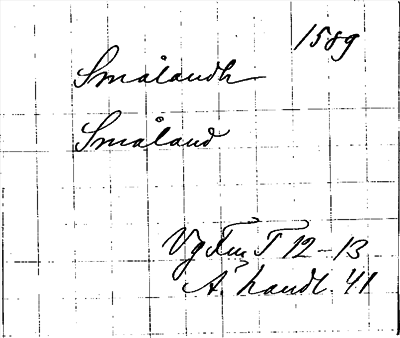 1589
Smålandh
Småland
Vg Fm T 12-13
Å. handl. 41